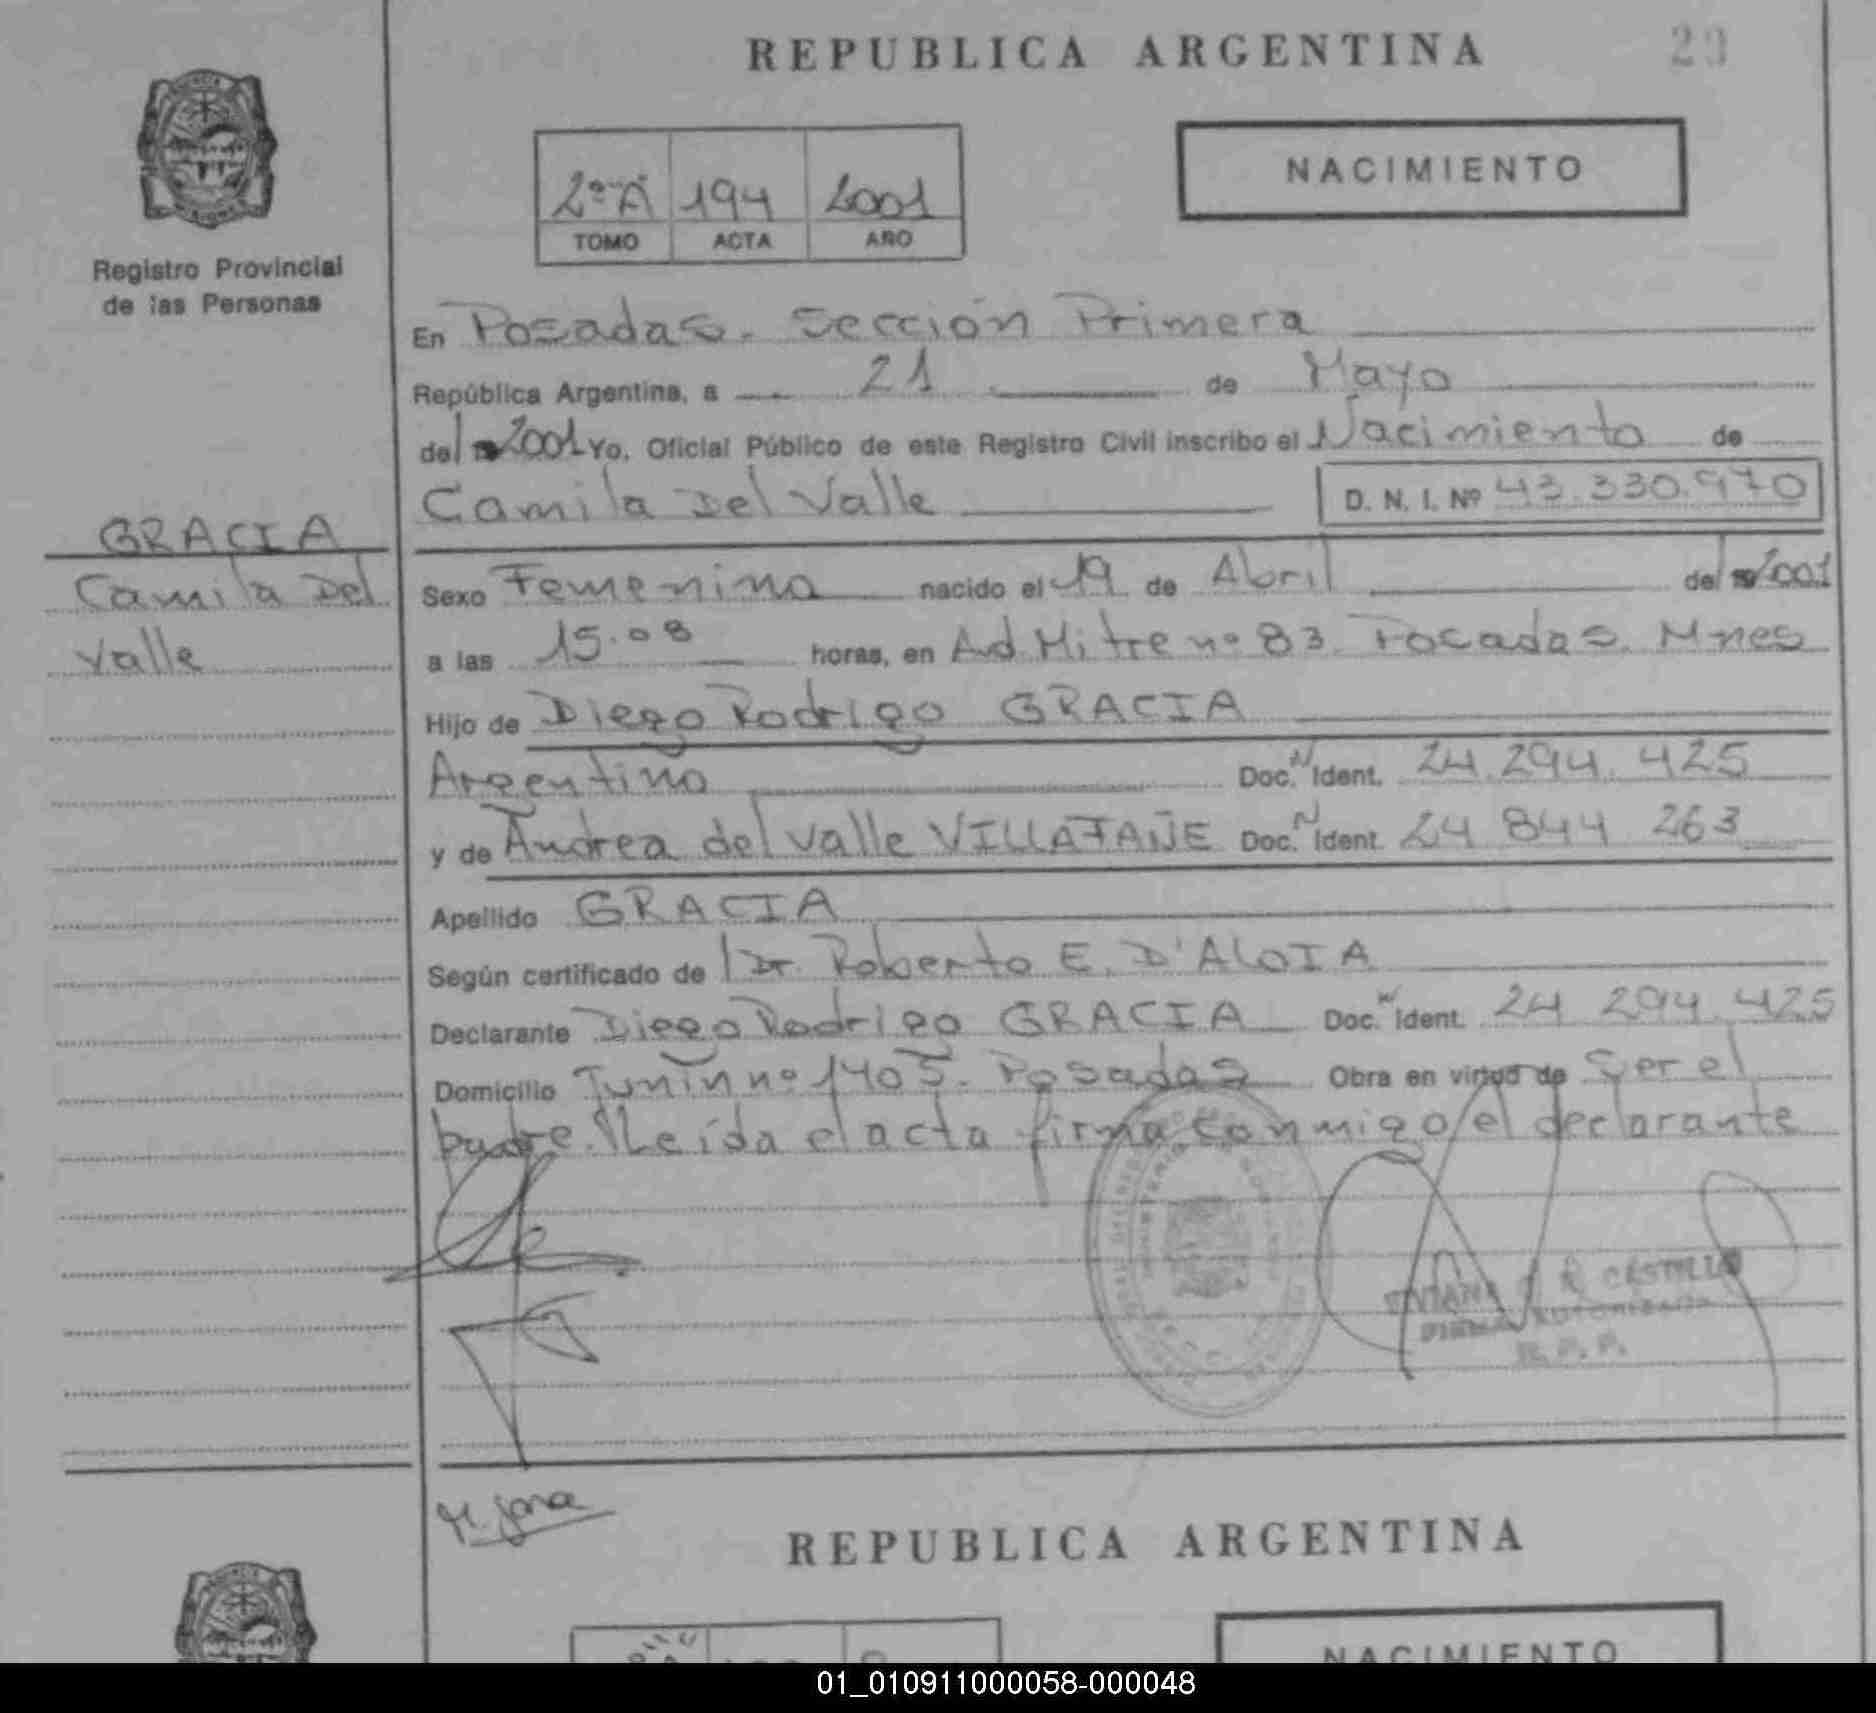 REPUBLICA ARGENTINA
23
NACIMIENTO
2º "A" 194 2001
TOMO ACTA AÑO
Registro Provincial
de las Personas
En Posadas. Sección Primera
República Argentina, a 21 de Mayo
del 2001 Yo, Oficial Público de este Registro Civil inscribo el Nacimiento de
Camila Del Valle D. N. I. Nº 43.330.970
GRACIA
Camila Del
Valle
Sexo Femenino nacido el 19 de Abril del 2001
a las 15.08 horas, en Avd. Mitre nº 83. Posadas. Mnes
Hijo de Diego Rodrigo GRACIA
Argentino Doc. N Ident. 24.294.425
y de Andrea del Valle VILLAFAÑE Doc. N Ident. 24 844 263
Apellido GRACIA
Según certificado de Dr. Roberto E. D'ALOIA
Declarante Diego Rodrigo GRACIA Doc. N Ident. 24 294 425
Domicilio Junín nº 1405. Posadas Obra en virtud de Ser el
padre. Leída el acta firma conmigo el declarante
CASTILLO
FIRMA AUTORIZADA
R. P. P.
REPUBLICA ARGENTINA
NACIMIENTO
01_010911000058-000048